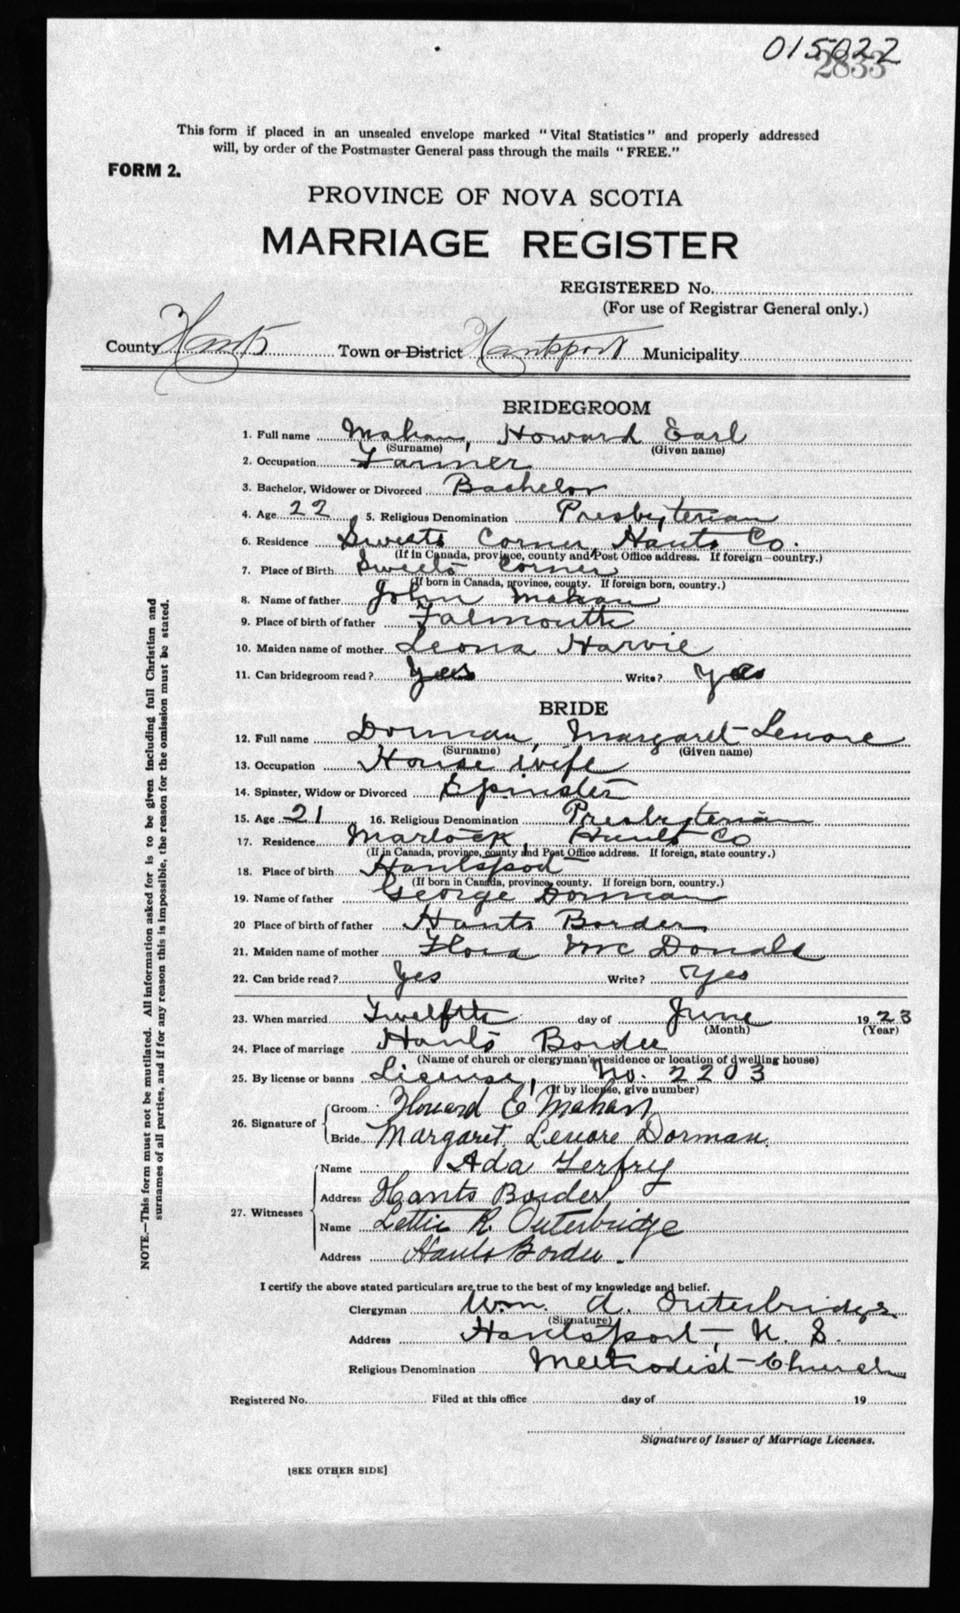 015022
2833
This form if placed in an unsealed envelope marked "Vital Statistics" and properly addressed
will, by order of the Postmaster General pass through the mails "FREE."
FORM 2.
PROVINCE OF NOVA SCOTIA
MARRIAGE REGISTER
REGISTERED No.
(For use of Registrar General only.)
County Hants Town or District Hantsport Municipality
BRIDEGROOM
1. Full name Mahan, Howard Earl
(Surname) (Given name)
2. Occupation Farmer
3. Bachelor, Widower or Divorced Bachelor
4. Age 22 5. Religious Denomination Presbyterian
6. Residence Sweets Corner, Hants Co.
(If in Canada, province, county and Post Office address. If foreign—country.)
7. Place of Birth Sweets Corner
(If born in Canada, province, county. If foreign born, country.)
8. Name of father John Mahan
9. Place of birth of father Falmouth
10. Maiden name of mother Leona Harvie
11. Can bridegroom read? Yes Write? Yes
BRIDE
12. Full name Dorman, Margaret Lenore
(Surname) (Given name)
13. Occupation House wife
14. Spinster, Widow or Divorced Spinster
15. Age 21 16. Religious Denomination Presbyterian
17. Residence Marlock, Hants Co
(If in Canada, province, county and Post Office address. If foreign, state country.)
18. Place of birth Hantspod
(If born in Canada, province, county. If foreign born, country.)
19. Name of father George Dorman
20 Place of birth of father Hants Border
21. Maiden name of mother Flora McDonald
22. Can bride read? Yes Write? Yes
23. When married Twelfth day of June 1923
(Month) (Year)
24. Place of marriage Hants Border
(Name of church or clergyman's residence or location of dwelling house)
25. By license or banns License, No. 2203
(If by license, give number)
26. Signature of
Groom Howard E Mahan
Bride Margaret Lenore Dorman
27. Witnesses
Name Ada
Address Hants Border
Name Lettie R. Outerbridge
Address Hants Border.
I certify the above stated particulars are true to the best of my knowledge and belief.
Clergyman Wm. A. Outerbridge
(Signature)
Address Hantsport, N. S.
Religious Denomination Methodist Church
Registered No. Filed at this office day of 19
Signature of Issuer of Marriage Licenses.
[SEE OTHER SIDE]
NOTE.—This form must not be mutilated. All information asked for is to be given including full Christian and
surnames of all parties, and if for any reason this is impossible, the reason for the omission must be stated.